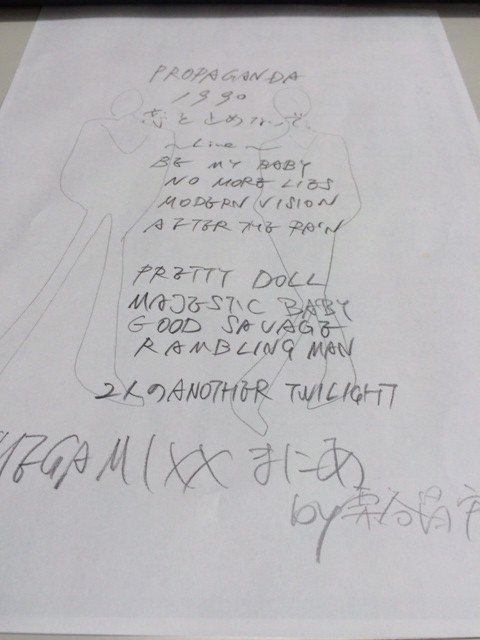 PROPAGANDA
1990
恋をとめないで
～Live～
BE MY BABY
NO MORE LIES
MODERN VISION
AFTER THE PAIN
PRETTY DOLL
MAJESTIC BABY
GOOD SAVAGE
RAMBLING MAN
2人のANOTHER TWILIGHT
MEGAMIXX まにあ
by